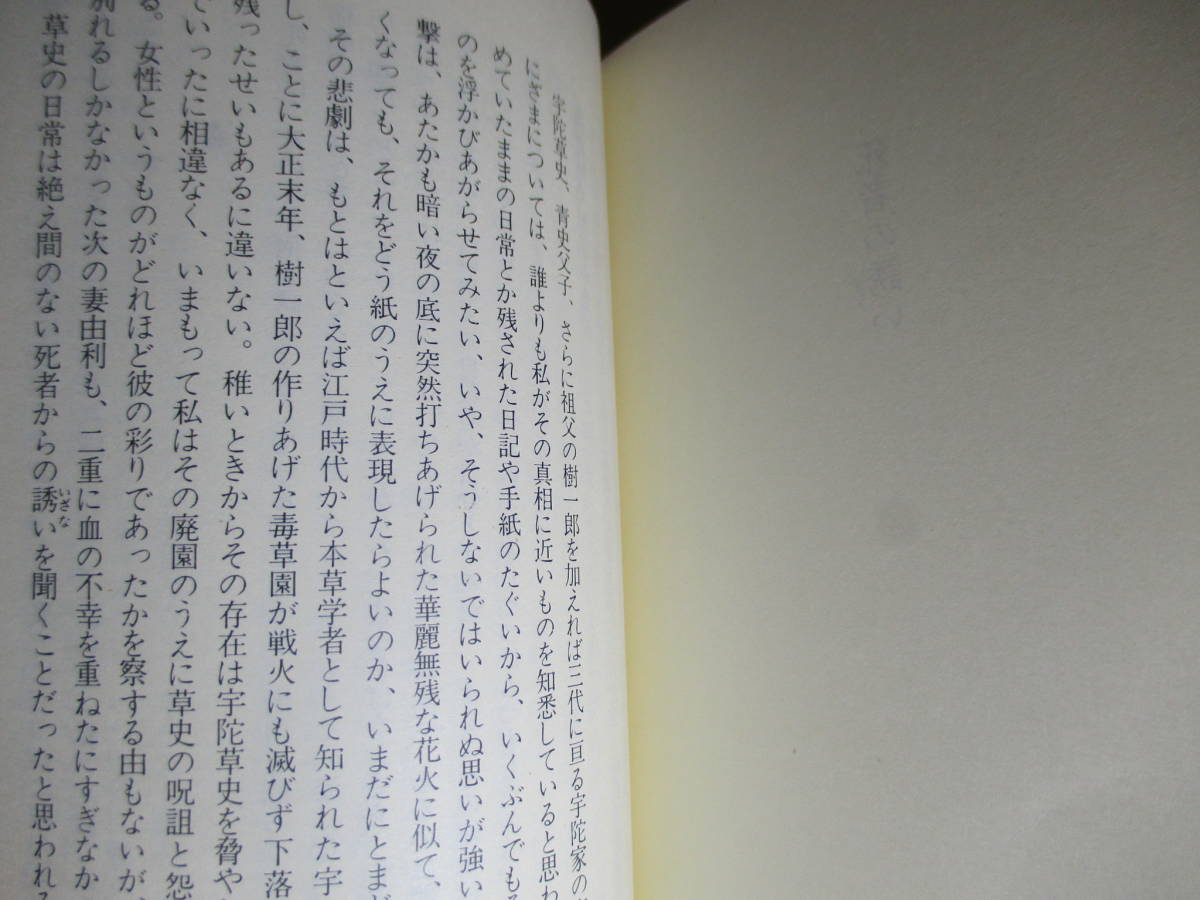 宇陀草史、青史父子、さらに祖父の樹一郎を加えれば三代に亘る宇陀家の
にざまについては、誰よりも私がその真相に近いものを知悉していると思わ
めていたままの日常とか残された日記や手紙のたぐいから、いくぶんでもそ
のを浮かびあがらせてみたい、いや、そうしないではいられぬ思いが強い
撃は、あたかも暗い夜の底に突然打ちあげられた華麗無残な花火に似て、
くなっても、それをどう紙のうえに表現したらよいのか、いまだにとまど
その悲劇は、もとはといえば江戸時代から本草学者として知られた宇
し、ことに大正末年、樹一郎の作りあげた毒草園が戦火にも滅びず下落
残ったせいもあるに違いない。稚いときからその存在は宇陀草史を脅や
ていったに相違なく、いまもって私はその廃園のうえに草史の呪詛と怨
る。女性というものがどれほど彼の彩りであったかを察する由もないが、
別れるしかなかった次の妻由利も、二重に血の不幸を重ねたにすぎなか
草史の日常は絶え間のない死者からの誘いを聞くことだったと思われる
いざな
死者の誘い